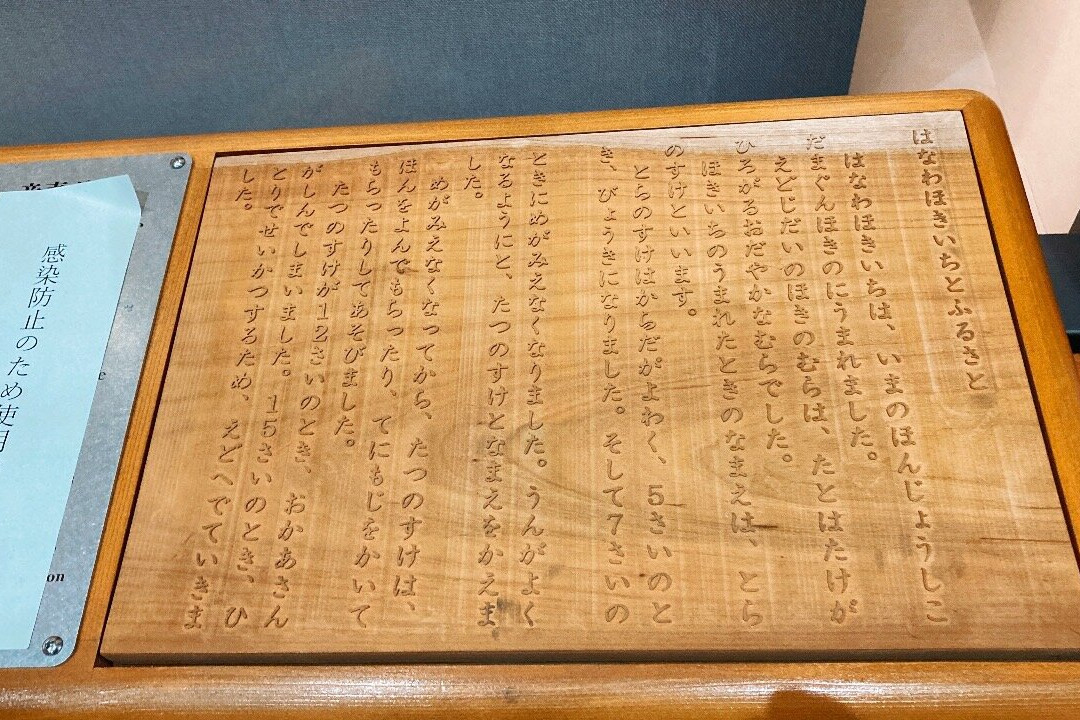 はなわほきいちとふるさと
はなわほきいちは、いまのほんじょうしこ
だまぐんほきのにうまれました。
えどじだいのほきのむらは、たとはたけが
ひろがるおだやかなむらでした。
ほきいちのうまれたときのなまえは、とら
のすけといいます。
とらのすけはからだがよわく、5さいのと
き、びょうきになりました。そして7さいの
ときにめがみえなくなりました。うんがよく
なるようにと、たつのすけとなまえをかえま
した。
めがみえなくなってから、たつのすけは、
ほんをよんでもらったり、てにもじをかいて
もらったりしてあそびました。
たつのすけが12さいのとき、おかあさん
がしんでしまいました。15さいのとき、ひ
とりでせいかつするため、えどへでていきま
した。
感染防止のため使用
on